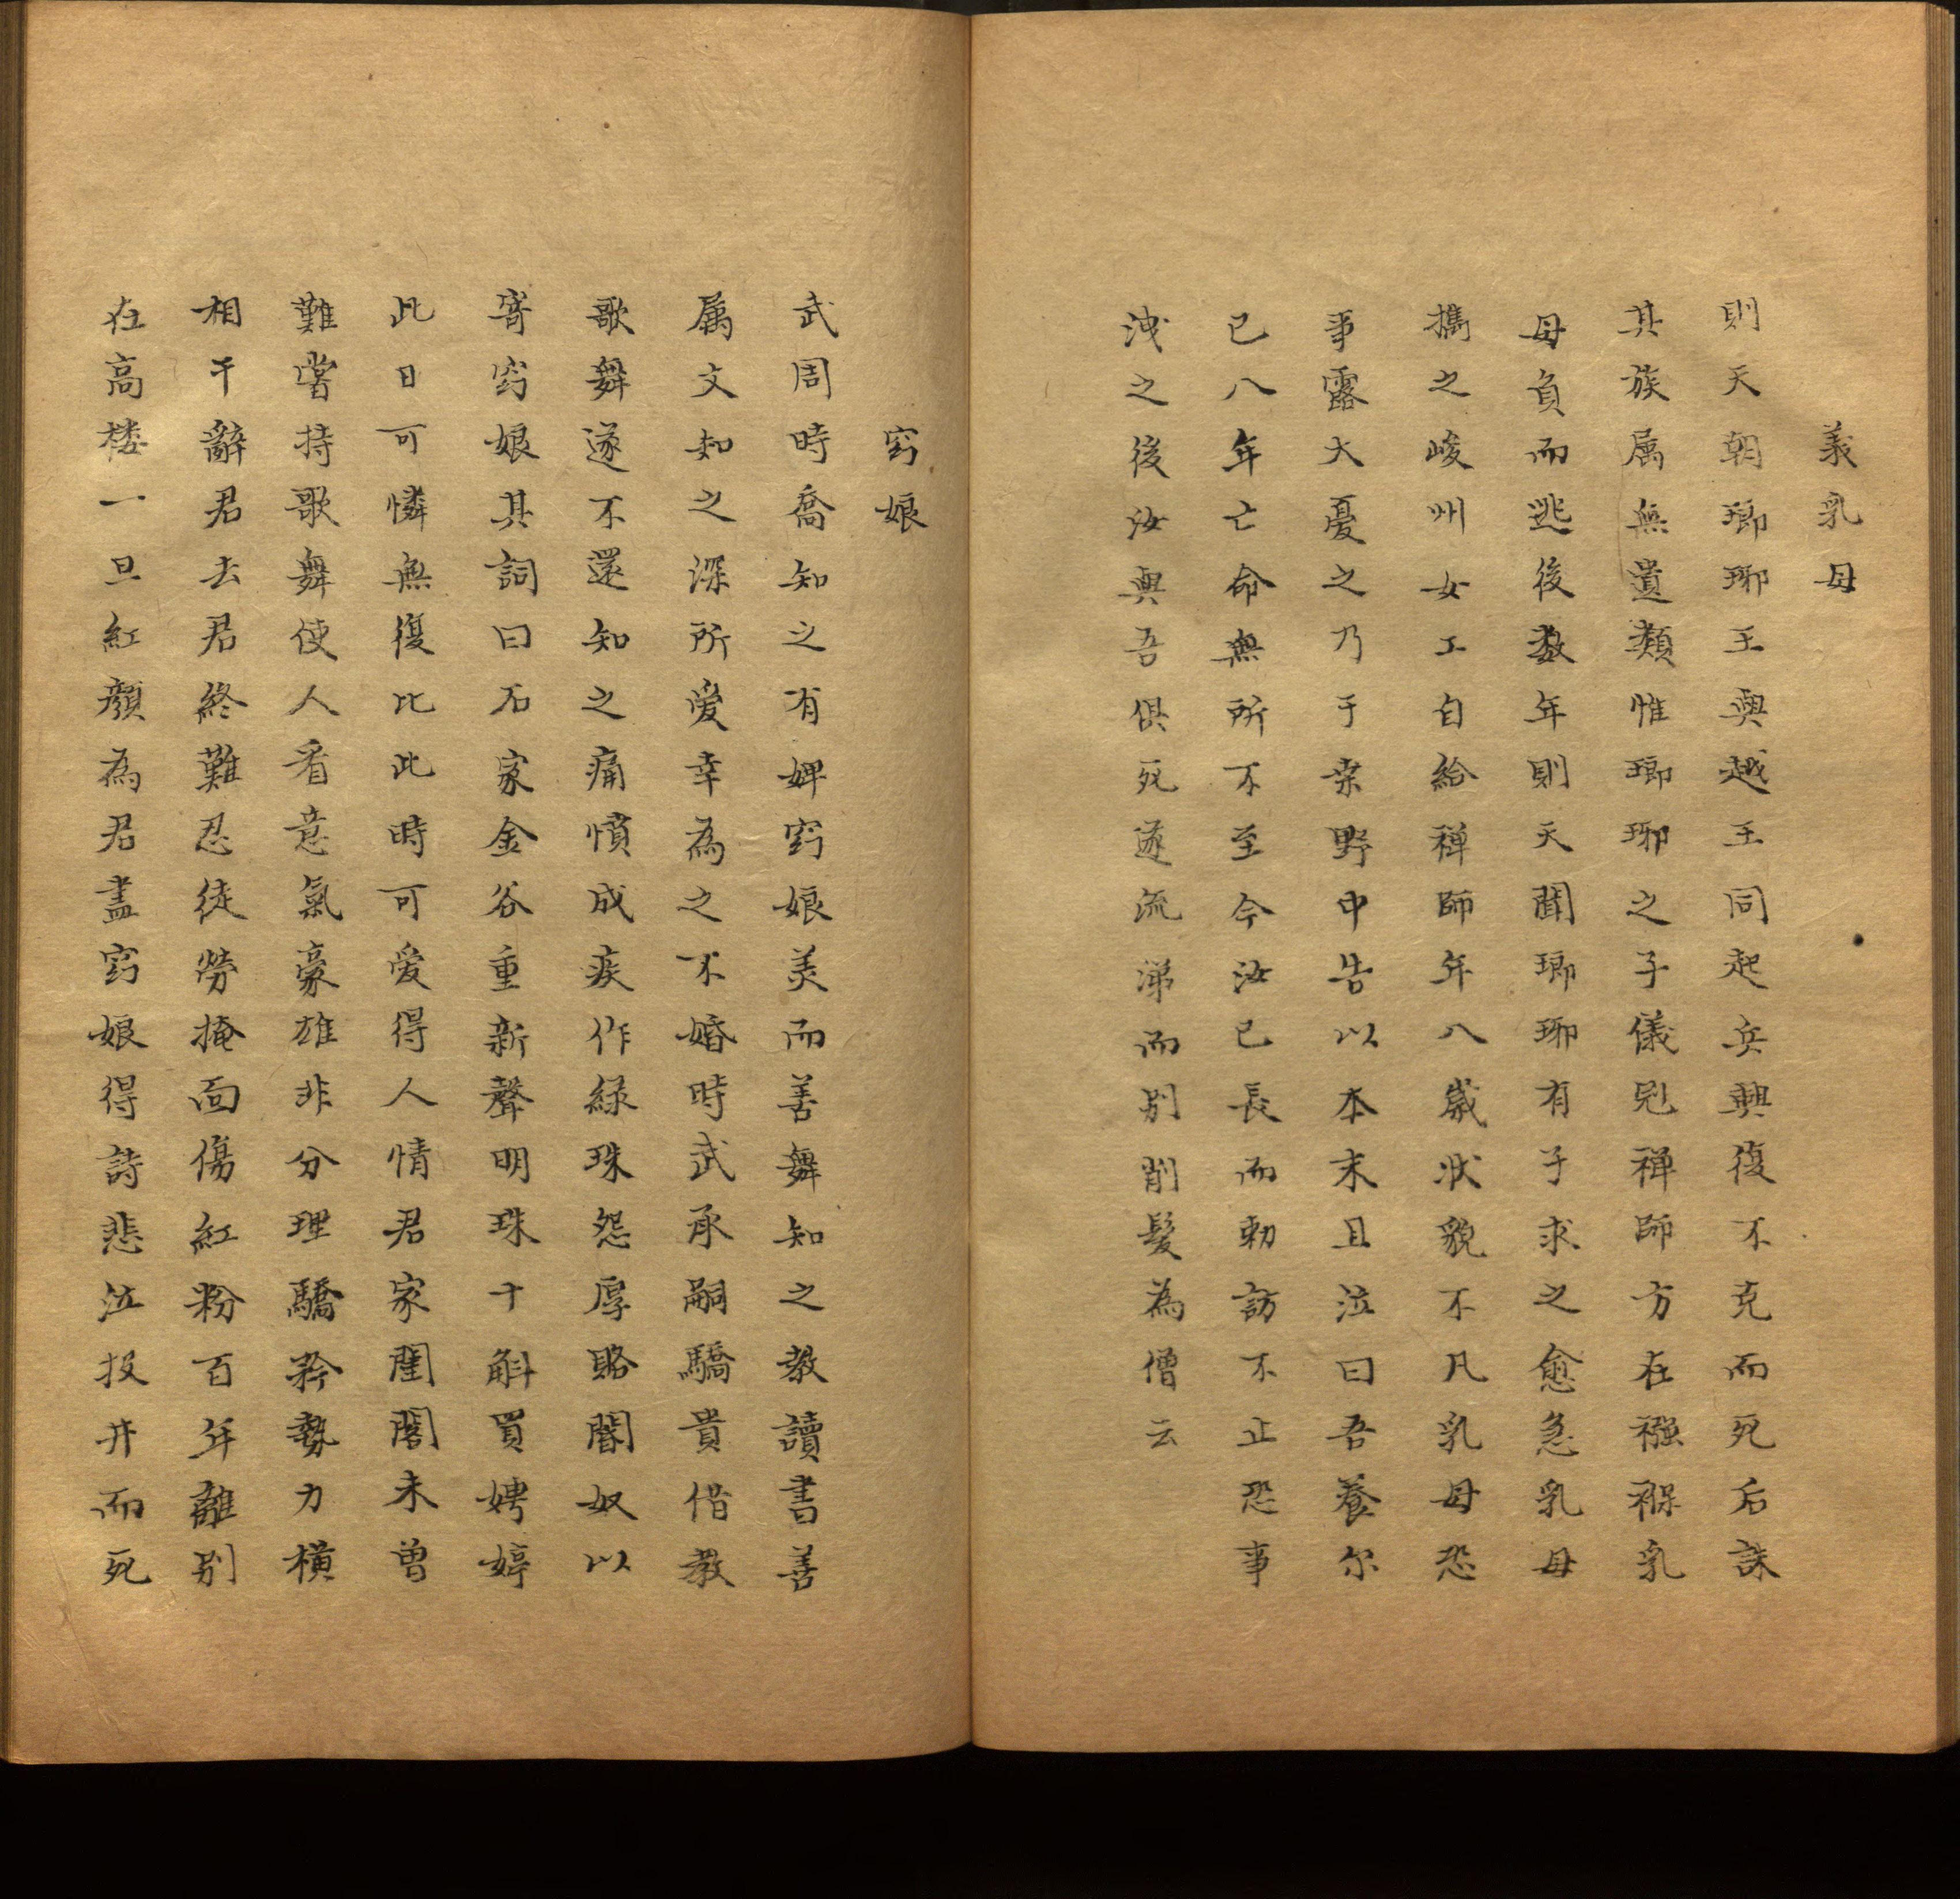 義乳母
則天朝瑯琊王與越王同起兵興復不克而死后誅
其族属無遺類惟瑯琊之子儀尅禅師方在襁褓乳
母負而逃後数年則天聞瑯琊有子求之愈急乳母
携之峻州女工自給禅師年八歲狀貌不凡乳母恐
事露大憂之乃于桒野中告以本末且泣曰吾養尔
已八年亡命無所不至今汝已長而勅訪不止恐事
洩之後汝與吾俱死遂流涕而别削髮為僧云
窈娘
武周時喬知之有婢窈娘美而善舞知之教讀書善
属文知之深所爱幸為之不婚時武承嗣驕貴借教
歌舞遂不還知之痛憤成疾作緑珠怨厚賂閽奴以
寄窈娘其詞曰石家金谷重新聲明珠十斛買娉婷
此日可憐無復比此時可爱得人情君家閨閣未曾
難嘗持歌舞使人看意氣豪雄非分理驕矜勢力橫
相干辭君去君終難忍徒勞掩面傷紅粉百年離别
在高楼一旦紅顏為君盡窈娘得詩悲泣投井而死